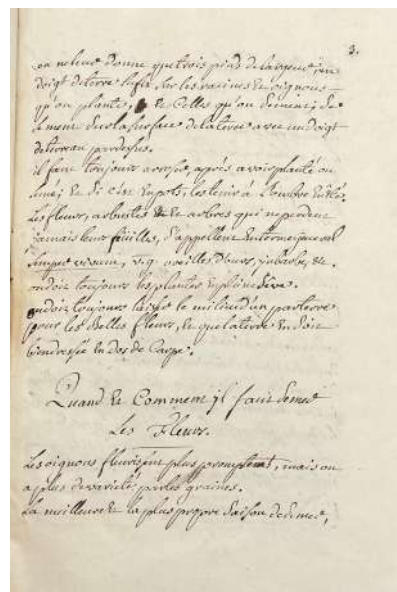 3.
on ne leur donne que trois pieds de largeur, un
doigt de terre suffit sur les racines et oignons
qu'on plante, et celles qu'on sement, se
sement sur la surface de la terre avec un doigt
de terreau par dessus.
il faut toujours arroser, après avoir planté ou
semé; et si c'est en pots, les tenir à l'ombre en été.
Les fleurs, arbustes et arbres qui ne perdent
jamais leurs feuilles, s'appellent
semper vivum, v.g. oreilles d'ours, jubarbe, &c.
on doit toujours les planter en pleine
on doit toujours laisser le milieu d'un parterre
pour les belles fleurs, et que la terre en soit
bien dressée en dos de Carpe.
Quand et Comment il faut semer
Les Fleurs.
Les oignons fleurissent plus promptement, mais on
a plus de varieté par les graines.
La meilleure et la plus propre saison de semer,